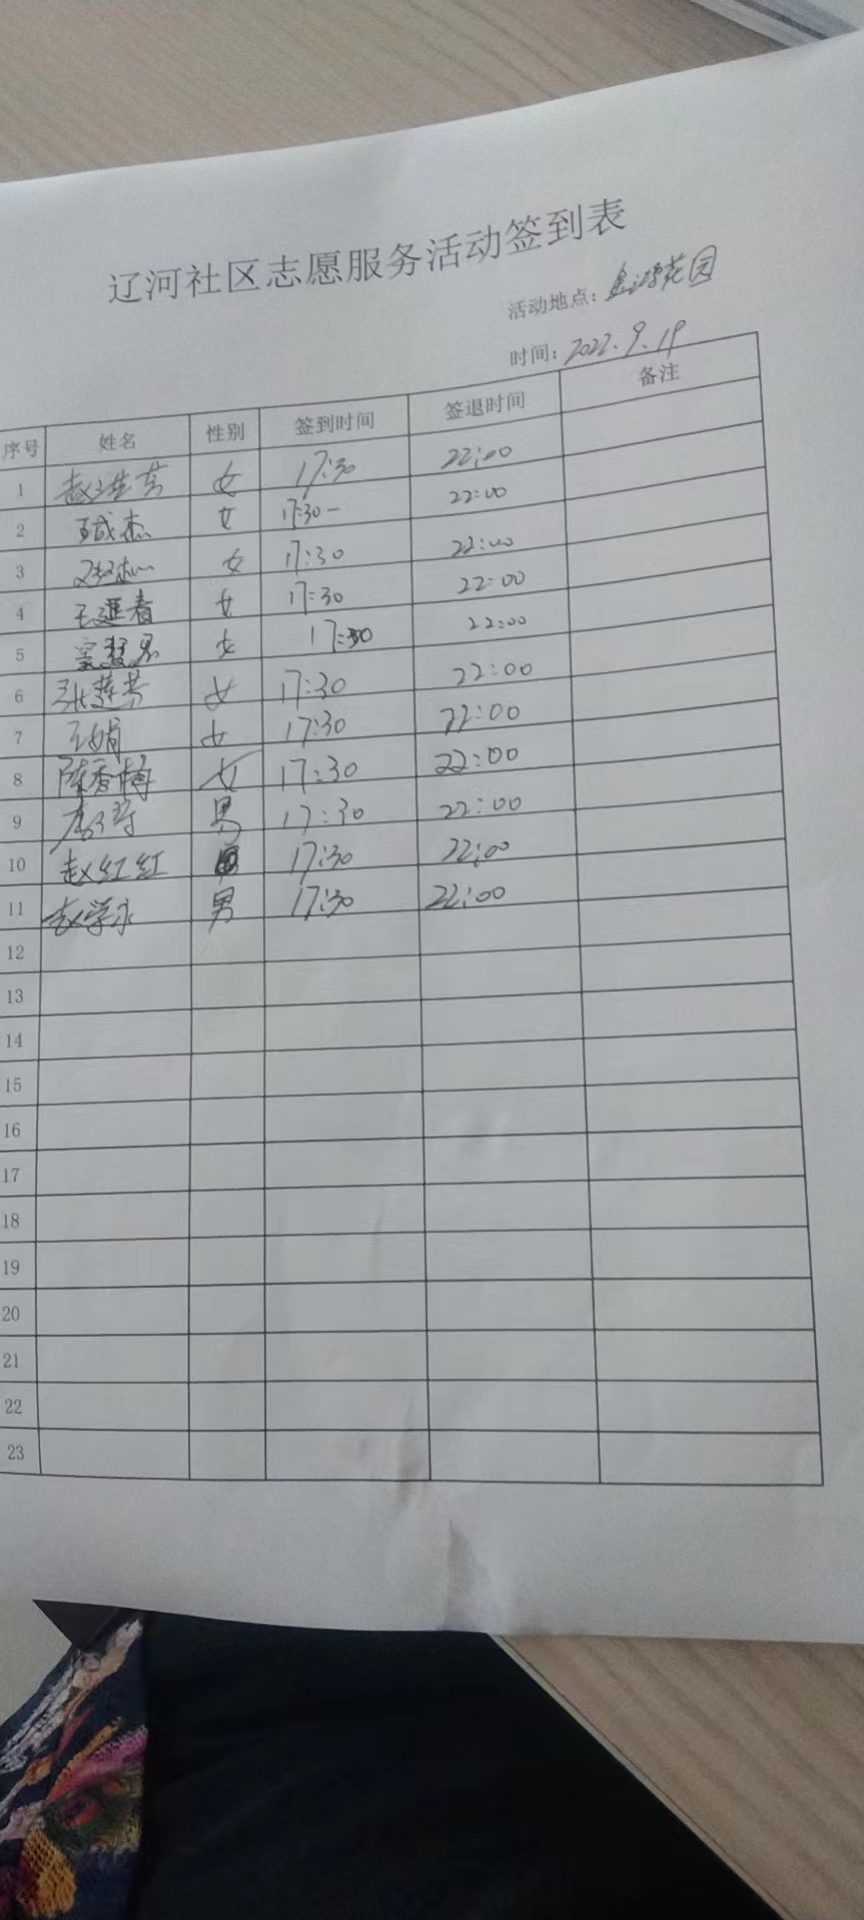 辽河社区志愿服务活动签到表
活动地点: 花园
时间: 2022.9.19
序号 姓名 性别 签到时间 签退时间 备注
1 女 17:30 22:00
2 女 17:30- 22:00
3 女 17:30 22:00
4 女 17:30 22:00
5 女 17:30 22:00
6 张莲芳 女 17:30 22:00
7 王娟 女 17:30 22:00
8 陈香梅 女 17:30 22:00
9 男 17:30 22:00
10 赵红红 17:30 22:00
11 赵学永 男 17:30 22:00
12
13
14
15
16
17
18
19
20
21
22
23